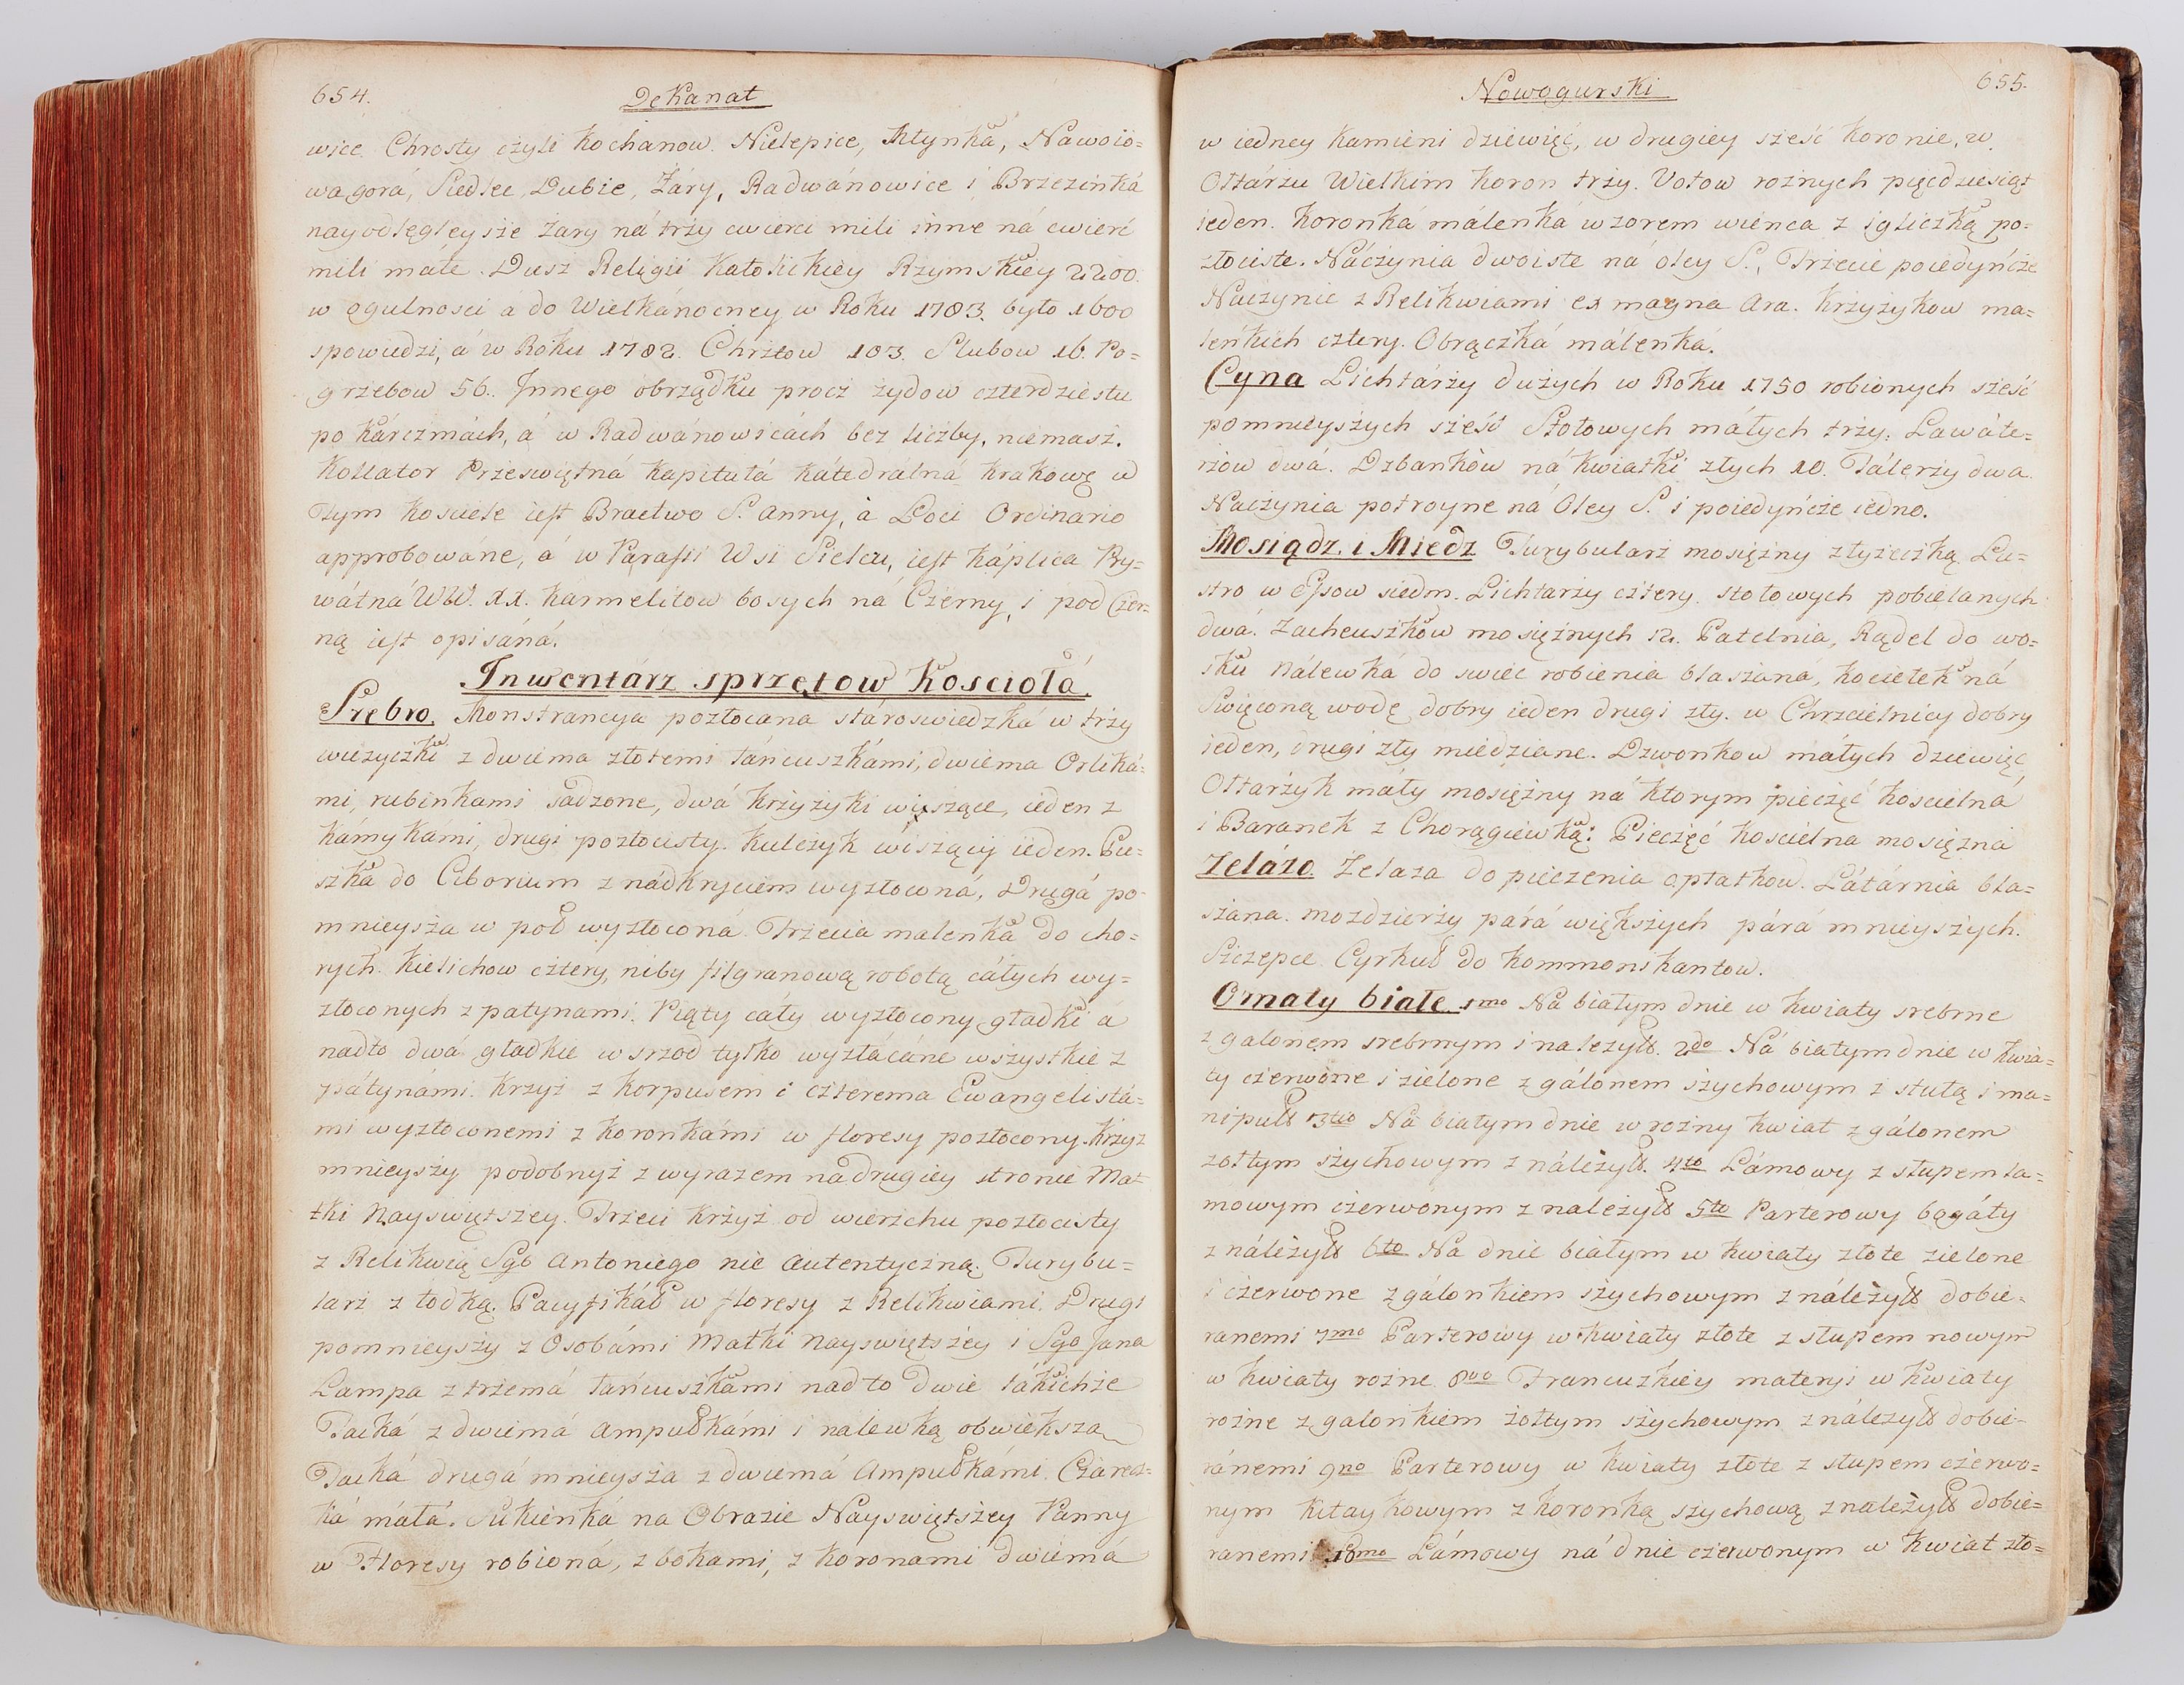 654.
Dekanat
wice Chrosty czyli Kochanow. Nielepice, Młynka, Nawoio=
wa gorá, Siedlec, Dubie, Żáry, Radwánowice i Brzezinká
nayodlęgleysze Żary ná trzy cwierci mili inne ná cwierć
mili małe. Dusz Religii Katolickiey Rzymskiey 2200.
w ogulnosci a do Wielkánocney w Roku 1783. było 1600
spowiedzi, á w Roku 1782. Chrztow 103. Slubow 16. Po=
grzebow 56. Innego obrządku procz żydow czterdziestu
po Kárczmách, á w Radwánowicách bez liczby, niemasz.
Kollator Przeswiętná Kapitułá Kátedralná Krakow: w
Tym Kosciele iest Bractwo S. Anny, à Loci Ordinario
approbowáne, á w Parafii Wsi Sielcu, iest Káplica Pry=
wátná WW. XX. Karmelitow bosych ná Czerny, i pod Czer=
ną iest opisáná.
Inwentárz sprzętow Kosciołá.
Srebro. Monstrancya pozłocana stároswiedzká w trzy
wieżyczki z dwiema złotemi łáńcuszkámi, dwiema Orliká=
mi, rubinkami sadzone, dwá krzyżyki wiszące, ieden z
kámykámi, drugi pozłocisty. Kulczyk wiszący ieden. Pu=
szka do Ciborium z nádkryciem wyzłoconá. Drugá po=
mnieysza w poł wyzłoconá. Trzecia malenka do cho=
rych. Kielichow cztery, niby filgranową robotą cáłych wy=
złoconych z patynami. Piąty cáły wyzłocony gładki á
nadto dwá gładkie w srzod tylko wyzłácáne wszystkie z
pátynámi. Krzyż z Korpusem i czterema Ewangelistá=
mi wyzłoconemi z koronkámi w floresy pozłocony. Krzyż
mnieyszy podobnyż z wyrazem na drugiey stronie Mat=
tki Nayswiętszey. Trzeci Krzyż od wierzchu pozłocisty
z Relikwią Sgo Antoniego nie autentyczną. Turybu=
larz z łodką. Pacyfikáł w floresy z Relikwiami. Drugi
pomnieyszy z Osobámi Matki Nayswiętszey i Sgo Jana
Lampa z trzemá łańcuszkami nadto dwie tákichże
Tacká z dwiemá ampułkámi i nalewką obwieksza
Tacká drugá mnieysza z dwiemá Ampułkámi. Czarecz=
ká máłá. Sukienká na Obrazie Nayswiętszey Panny
w Floresy robioná, z bokami, z koronami dwiemá
Nowogurski
655.
w iedney Kamieni dziewięć, w drugiey sześć koronie, w
Ołtárzu Wielkim Koron trzy. Votow rożnych pięcdziesiąt
ieden. Koronká máleńka wzorem wieńca z igliczką po=
złociste. Náczynia dwoiste na óley S., Trzecie poiedyńcze
Naczynie z Relikwiami ex magna Ara. Krzyżykow ma=
leńkich cztery. Obrączká máleńká.
Cyna Lichtárzy dużych w Roku 1750 robionych sześć
pomnieyszych sześć Stołowych máłych trzy. Lawáte=
rzow dwá. Dzbanków ná kwiatki złych 10. Tálerzy dwa.
Naczynia potroyne ná Oley S. i poiedyńcze iedno.
Mosiądz i Miedz Turybularz mosiężny z łyżeczką. Lu=
stro w Epsow siedm. Lichtarzy cztery, stołowych pobielanych
dwá. Zacheuszków mosiężnych 12. Patelnia, Rądel do wo=
sku Nálewká do swiec robienia blaszáná, Kociełek ná
Swięconą wodę dobry ieden drugi zły. w Chrzcielnicy dobry
ieden, drugi zły miedziane. Dzwonkow máłych dziewięć
Ołtárżyk máły mosiężny ná ktorym pieczęć koscielná
i Baranek z Chorągiewką: Pieczęć koscielna mosiężná
Zelázo. Żelaza do pieczenia opłatkow. Látárnia bla=
szana. mozdzierzy párá większych párá mnieyszych.
Szczepce Cyrkuł do Kommonikantow.
Ornaty białe. 1mo Na białym dnie w kwiaty srebrne
z galonem srebrnym i należył. 2do Ná białym dnie w kwia=
ty czerwone i zielone z gálonem szychowym z stułą i ma=
nipuł 3tio Na białym dnie w rożny kwiat z gálonem
żołtym szychowym z náleżył. 4to Lámowy z słupem la=
mowym czerwonym z należył 5to Parterowy bogáty
z náleżył 6to Na dnie białym w kwiaty złote zielone
i czerwone z gálonkiem szychowym z náleżył dobie=
ranemi 7mo Parterowy w kwiaty złote z słupem nowym
w kwiaty rożne 8vo Francuzkiey materyi w kwiaty
rożne z galonkiem żołtym szychowym z náleżył dobie=
ránemi 9no Parterowy w kwiaty złote z słupem czerwo=
nym kitaykowym z koronką szychową z należył dobie=
ranemi 10mo Lámowy ná dnie czerwonym w kwiat zło=